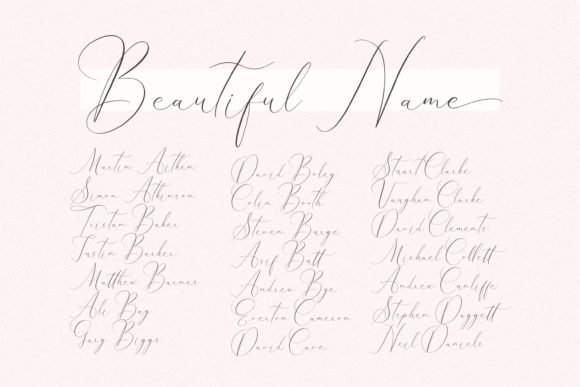 Beautiful Name
Martin Aitken
Simon Atkinson
Tristan Baker
Justin Barker
Matthew Barnes
Ali Bay
Gary Biggs
David Boley
Colin Booth
Steven Burge
Asif Butt
Andrew Bye
Everton Cameron
David Cave
Stuart Clarke
Vaughan Clarke
David Clements
Michael Collett
Andrew Cunliffe
Stephen Duggett
Neil Daniels